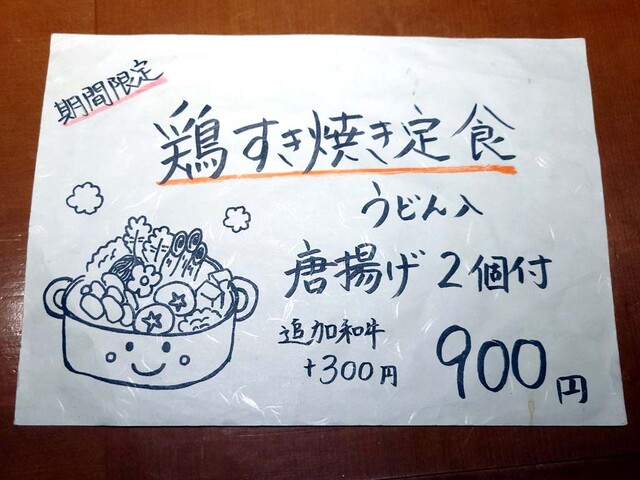 期間限定
鶏すき焼き定食
うどん入
唐揚げ2個付
追加和牛
+300円
900円